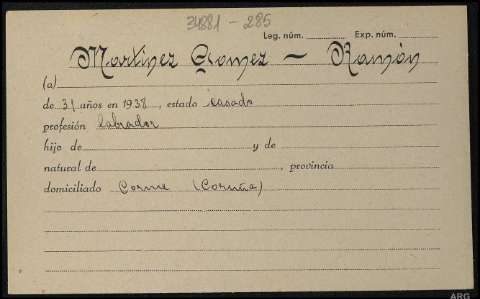 34881 - 285
Leg. núm. Exp. núm.
Martinez Gomez — Ramón
(a)
de 31 años en 1938, estado casado
profesión labrador
hijo de y de
natural de , provincia
domiciliado Corme (Coruña)
ARG